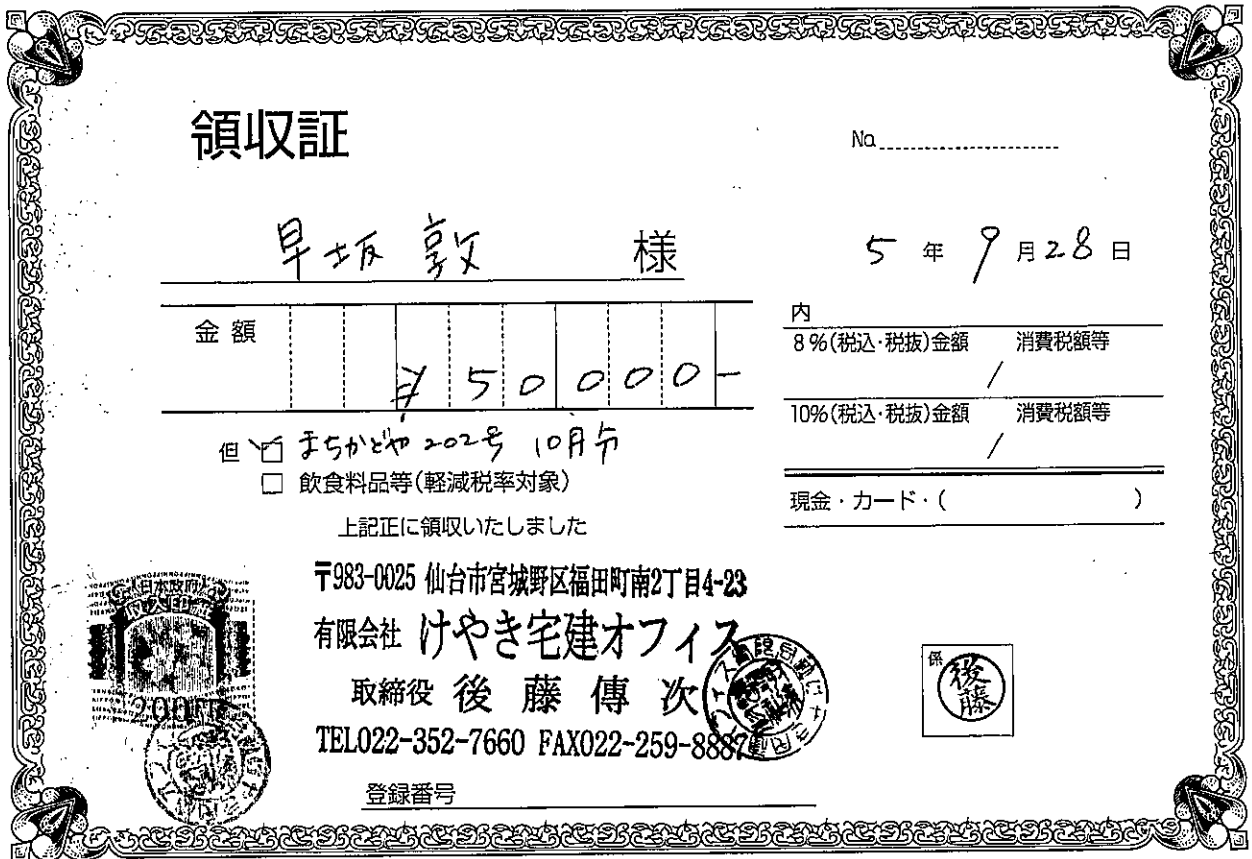 領収証
No.
早坂 敦 様
5年9月28日
金額 ¥50000-
但 まちかどや202号 10月分
□ 飲食料品等(軽減税率対象)
上記正に領収いたしました
内
8%(税込・税抜)金額 消費税額等
/
10%(税込・税抜)金額 消費税額等
/
現金・カード・( )
〒983-0025 仙台市宮城野区福田町南2丁目4-23
有限会社 けやき宅建オフィス
取締役 後藤傳次
TEL022-352-7660 FAX022-259-8887
登録番号
係 後藤
日本政府
収入印紙
200円